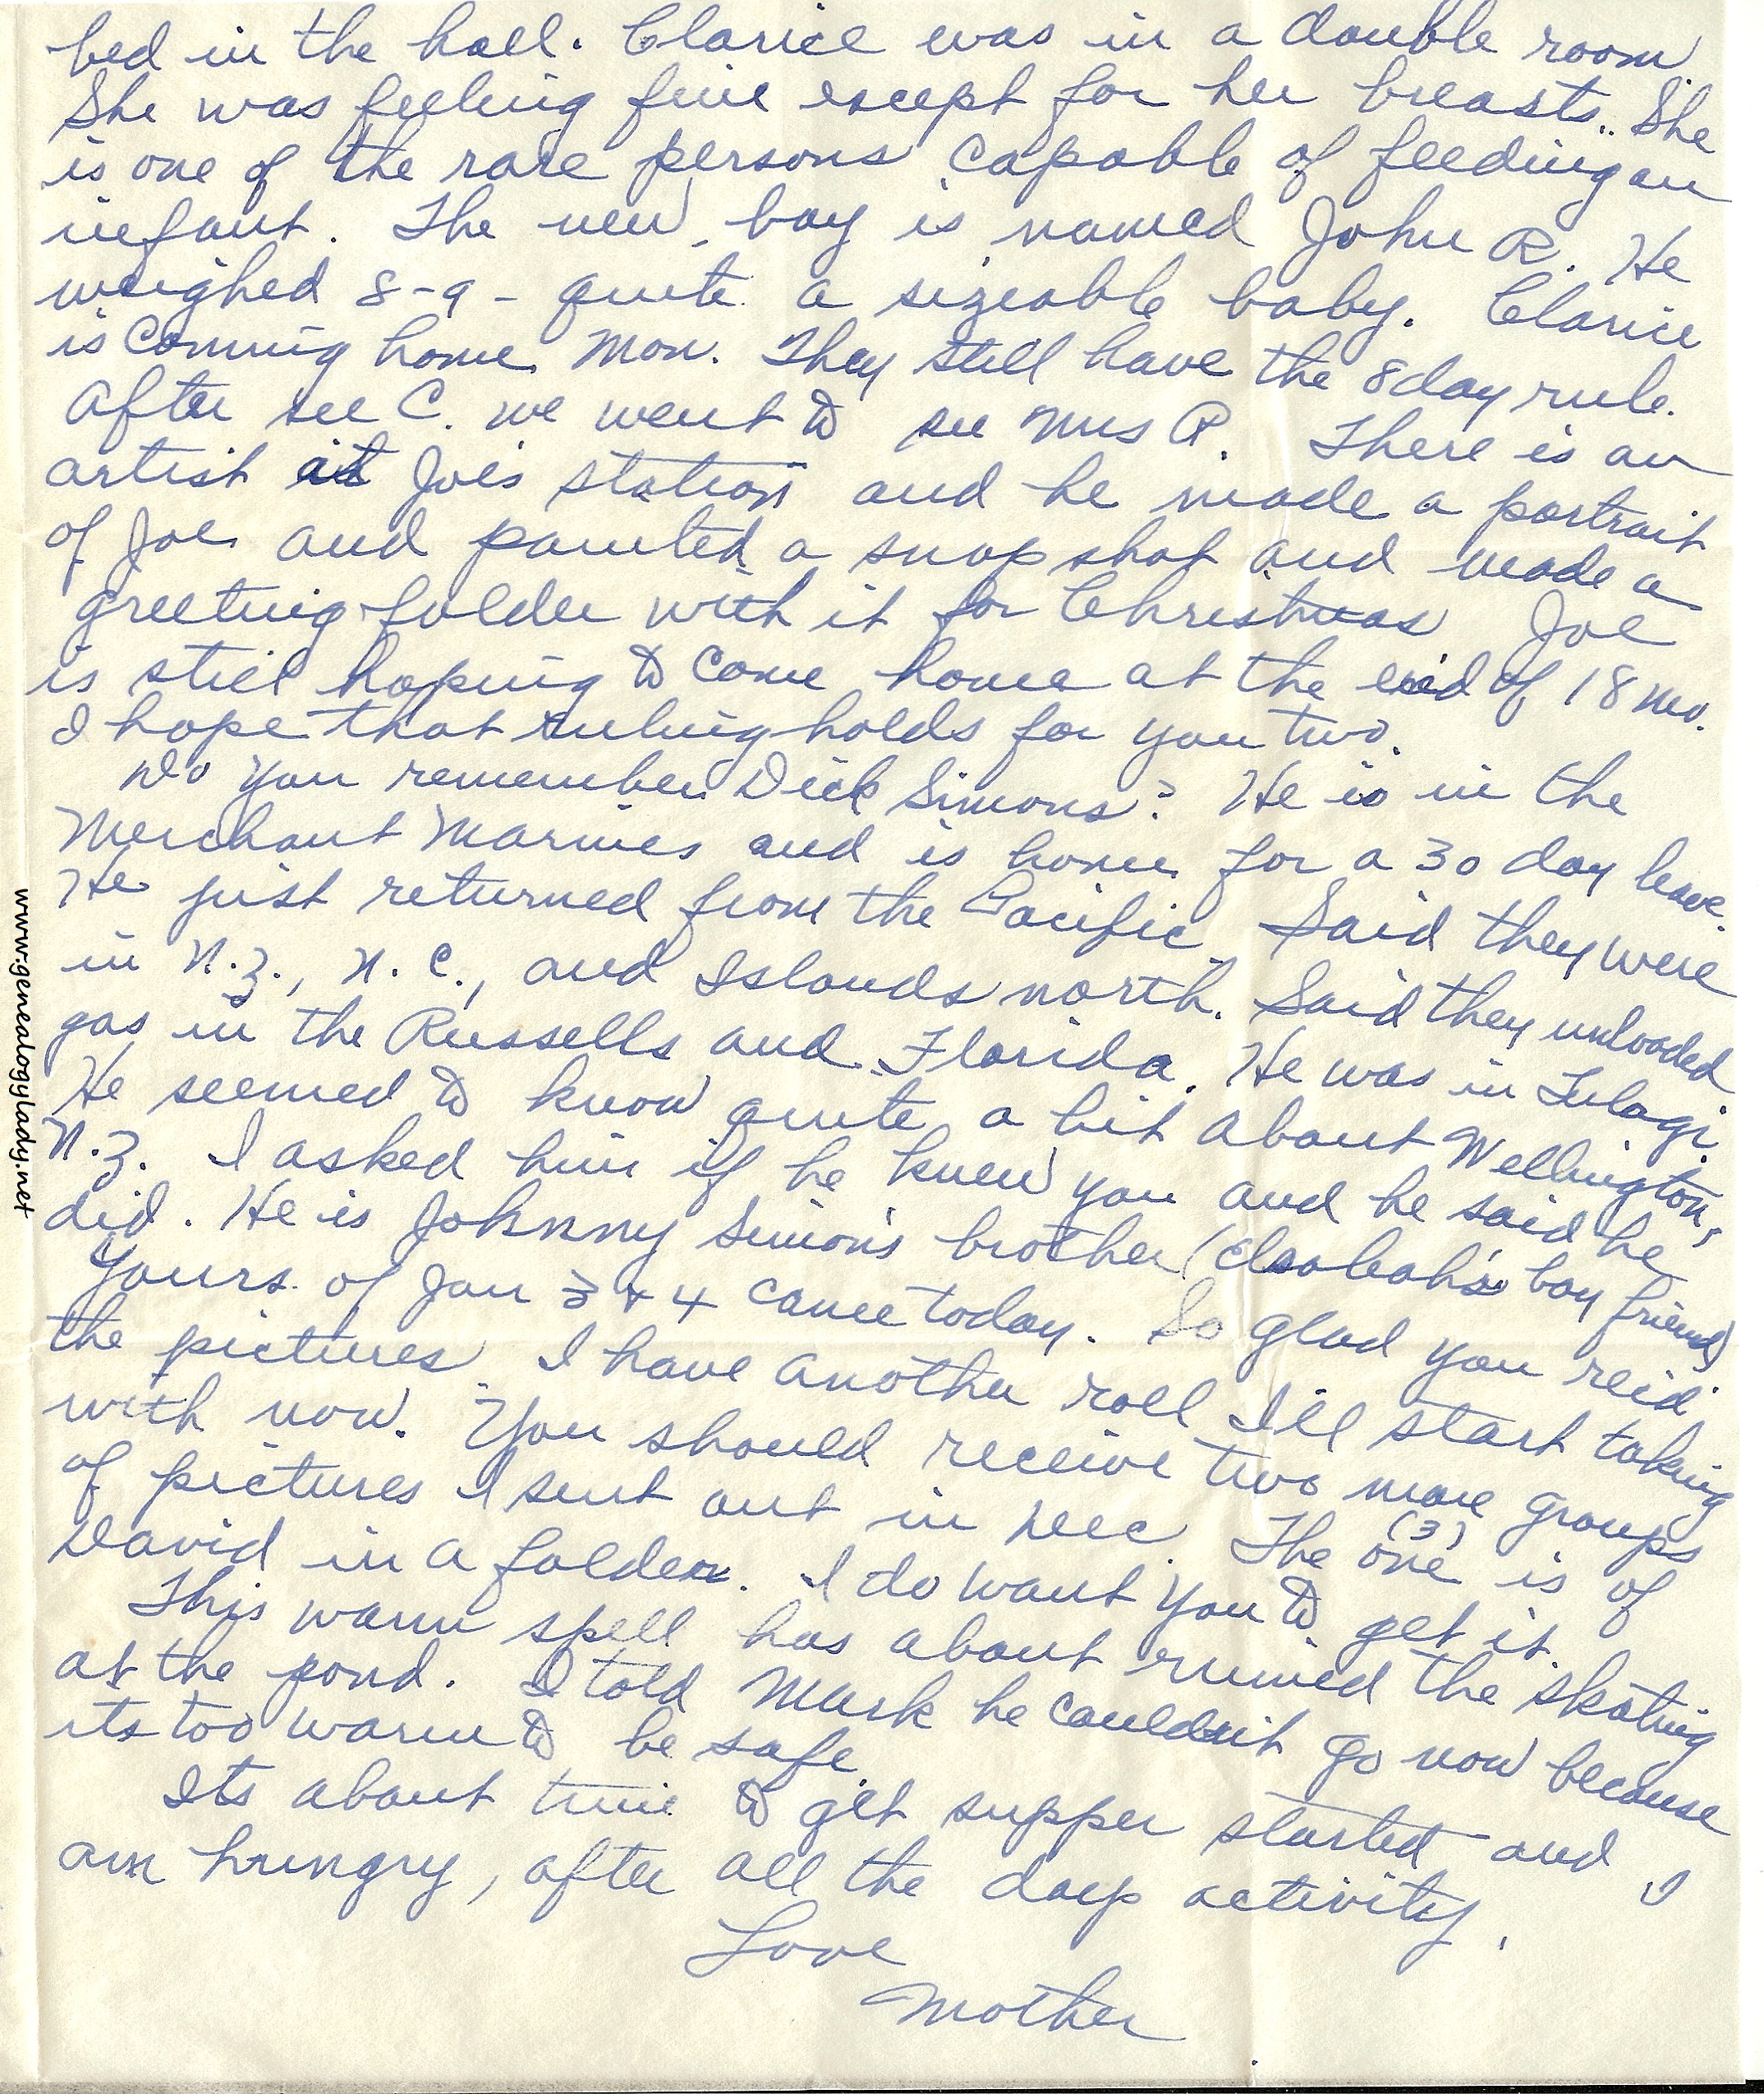 bed in the hall. Clarice was in a double room.
She was feeling fine except for her breasts.. She
is one of the rare persons capable of feeding an
infant. The new boy is named John R. He
weighed 8-9 - quite a sizeable baby. Clarice
is coming home Mon. They still have the 8 day rule.
After see C. we went to see Mrs R. There is an
artist at Joe's station and he made a portrait
of Joe and painted a snap shot and made a
greeting folder with it for Christmas Joe
is still hoping to come home at the end of 18 mo.
I hope that ruling holds for you two.
Do you remember Dick Simons? He is in the
Merchant Marines and is home for a 30 day leave.
He just returned from the Pacific. Said they were
in N.Z., N.C., and Islands north. Said they unloaded
gas in the Russells and Florida. He was in Tulagi.
He seemed to know quite a bit about Wellington,
N.Z. I asked him if he knew you and he said he
did. He is Johnny Simon's brother (Elsabah's boy friend)
Yours of Jan 3 + 4 came today. So glad you rec'd
the pictures. I have another roll I'll start taking
with now. You should receive two more groups
of pictures I sent out in Dec. The one (3) is of
David in a folder. I do want you to get it.
This warm spell has about ruined the skating
at the pond. I told Mark he couldn't go now because
its too warm to be safe.
Its about time to get supper started and I
am hungry, after all the days activity.
Love
Mother
www.genealogylady.net